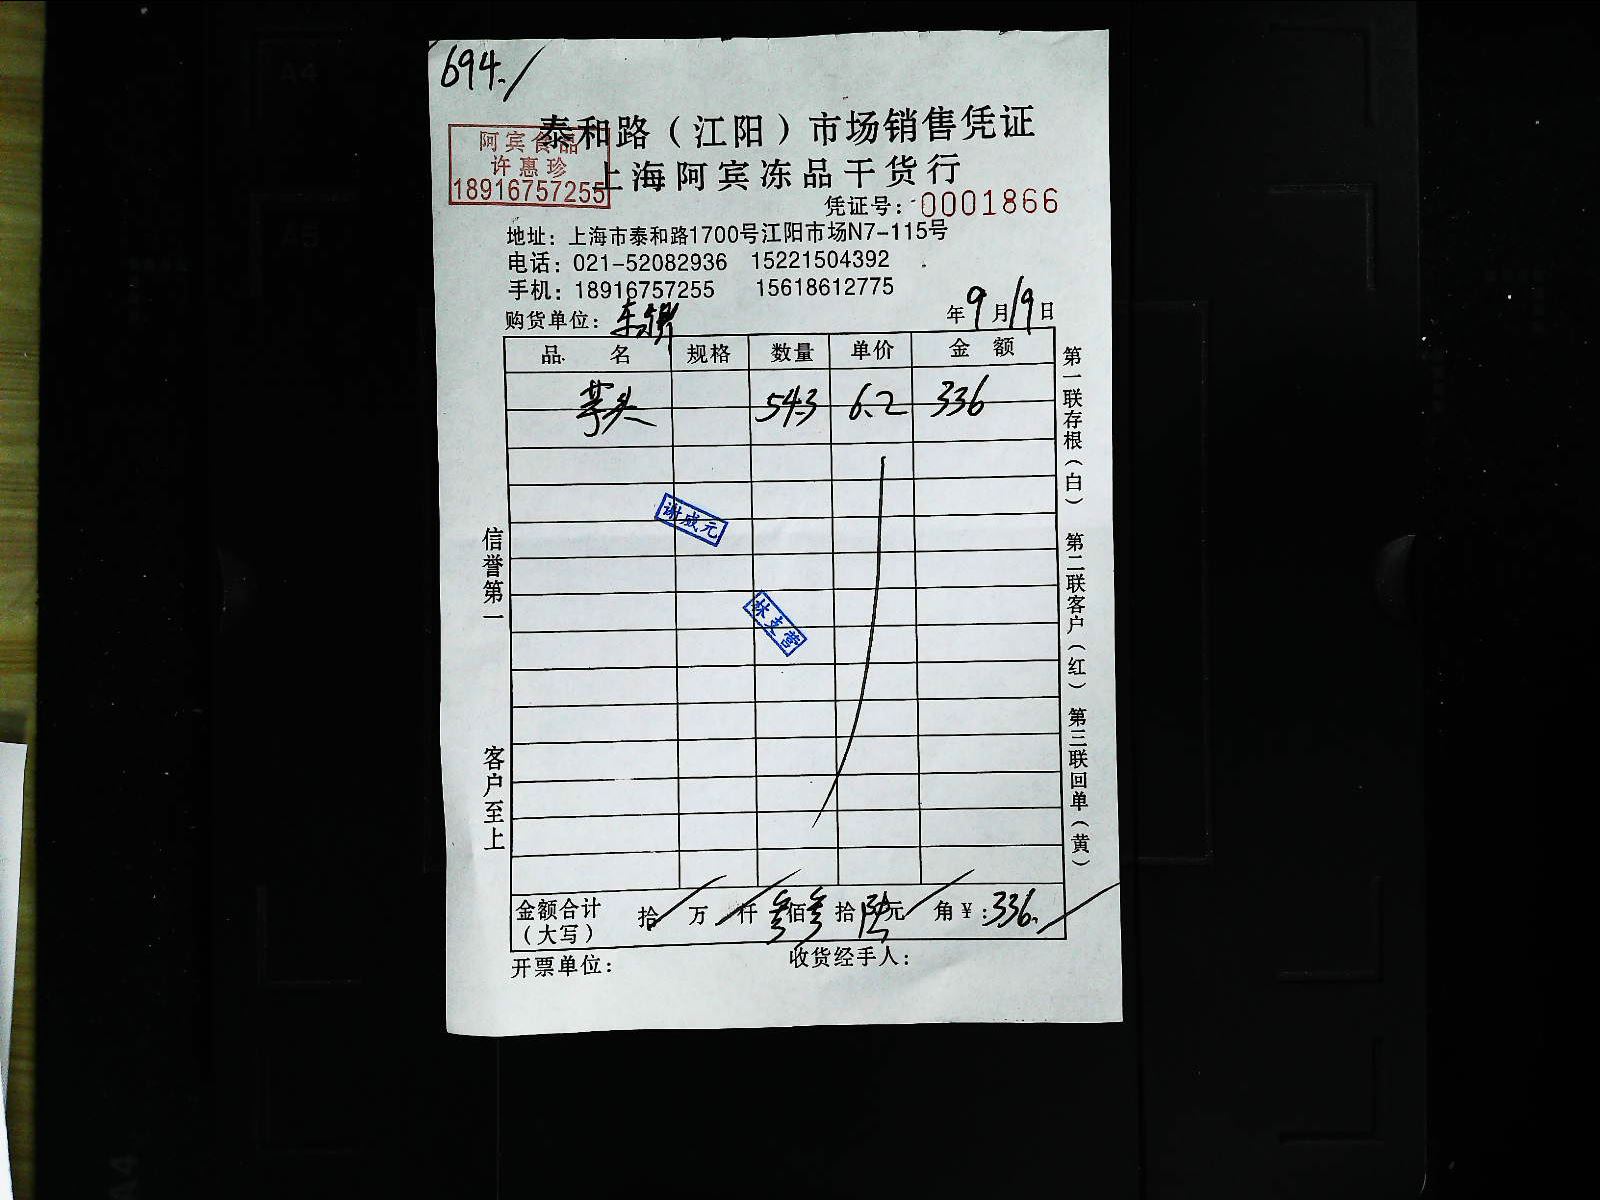 694./
泰和路（江阳）市场销售凭证
阿宾食品
许惠珍
18916757255
上海阿宾冻品干货行
凭证号：0001866
地址：上海市泰和路1700号江阳市场N7-115号
电话：021-52082936 15221504392
手机：18916757255 15618612775
购货单位： 年9月19日
品 名 规格 数量 单价 金 额
芋头 54.3 6.2 336
谢成元
林支营
信誉第一
客户至上
第一联存根（白） 第二联客户（红） 第三联回单（黄）
金额合计（大写） 拾 万 仟 叁佰叁拾陆元 角 ¥：336.
开票单位： 收货经手人：
A4
A5
A4